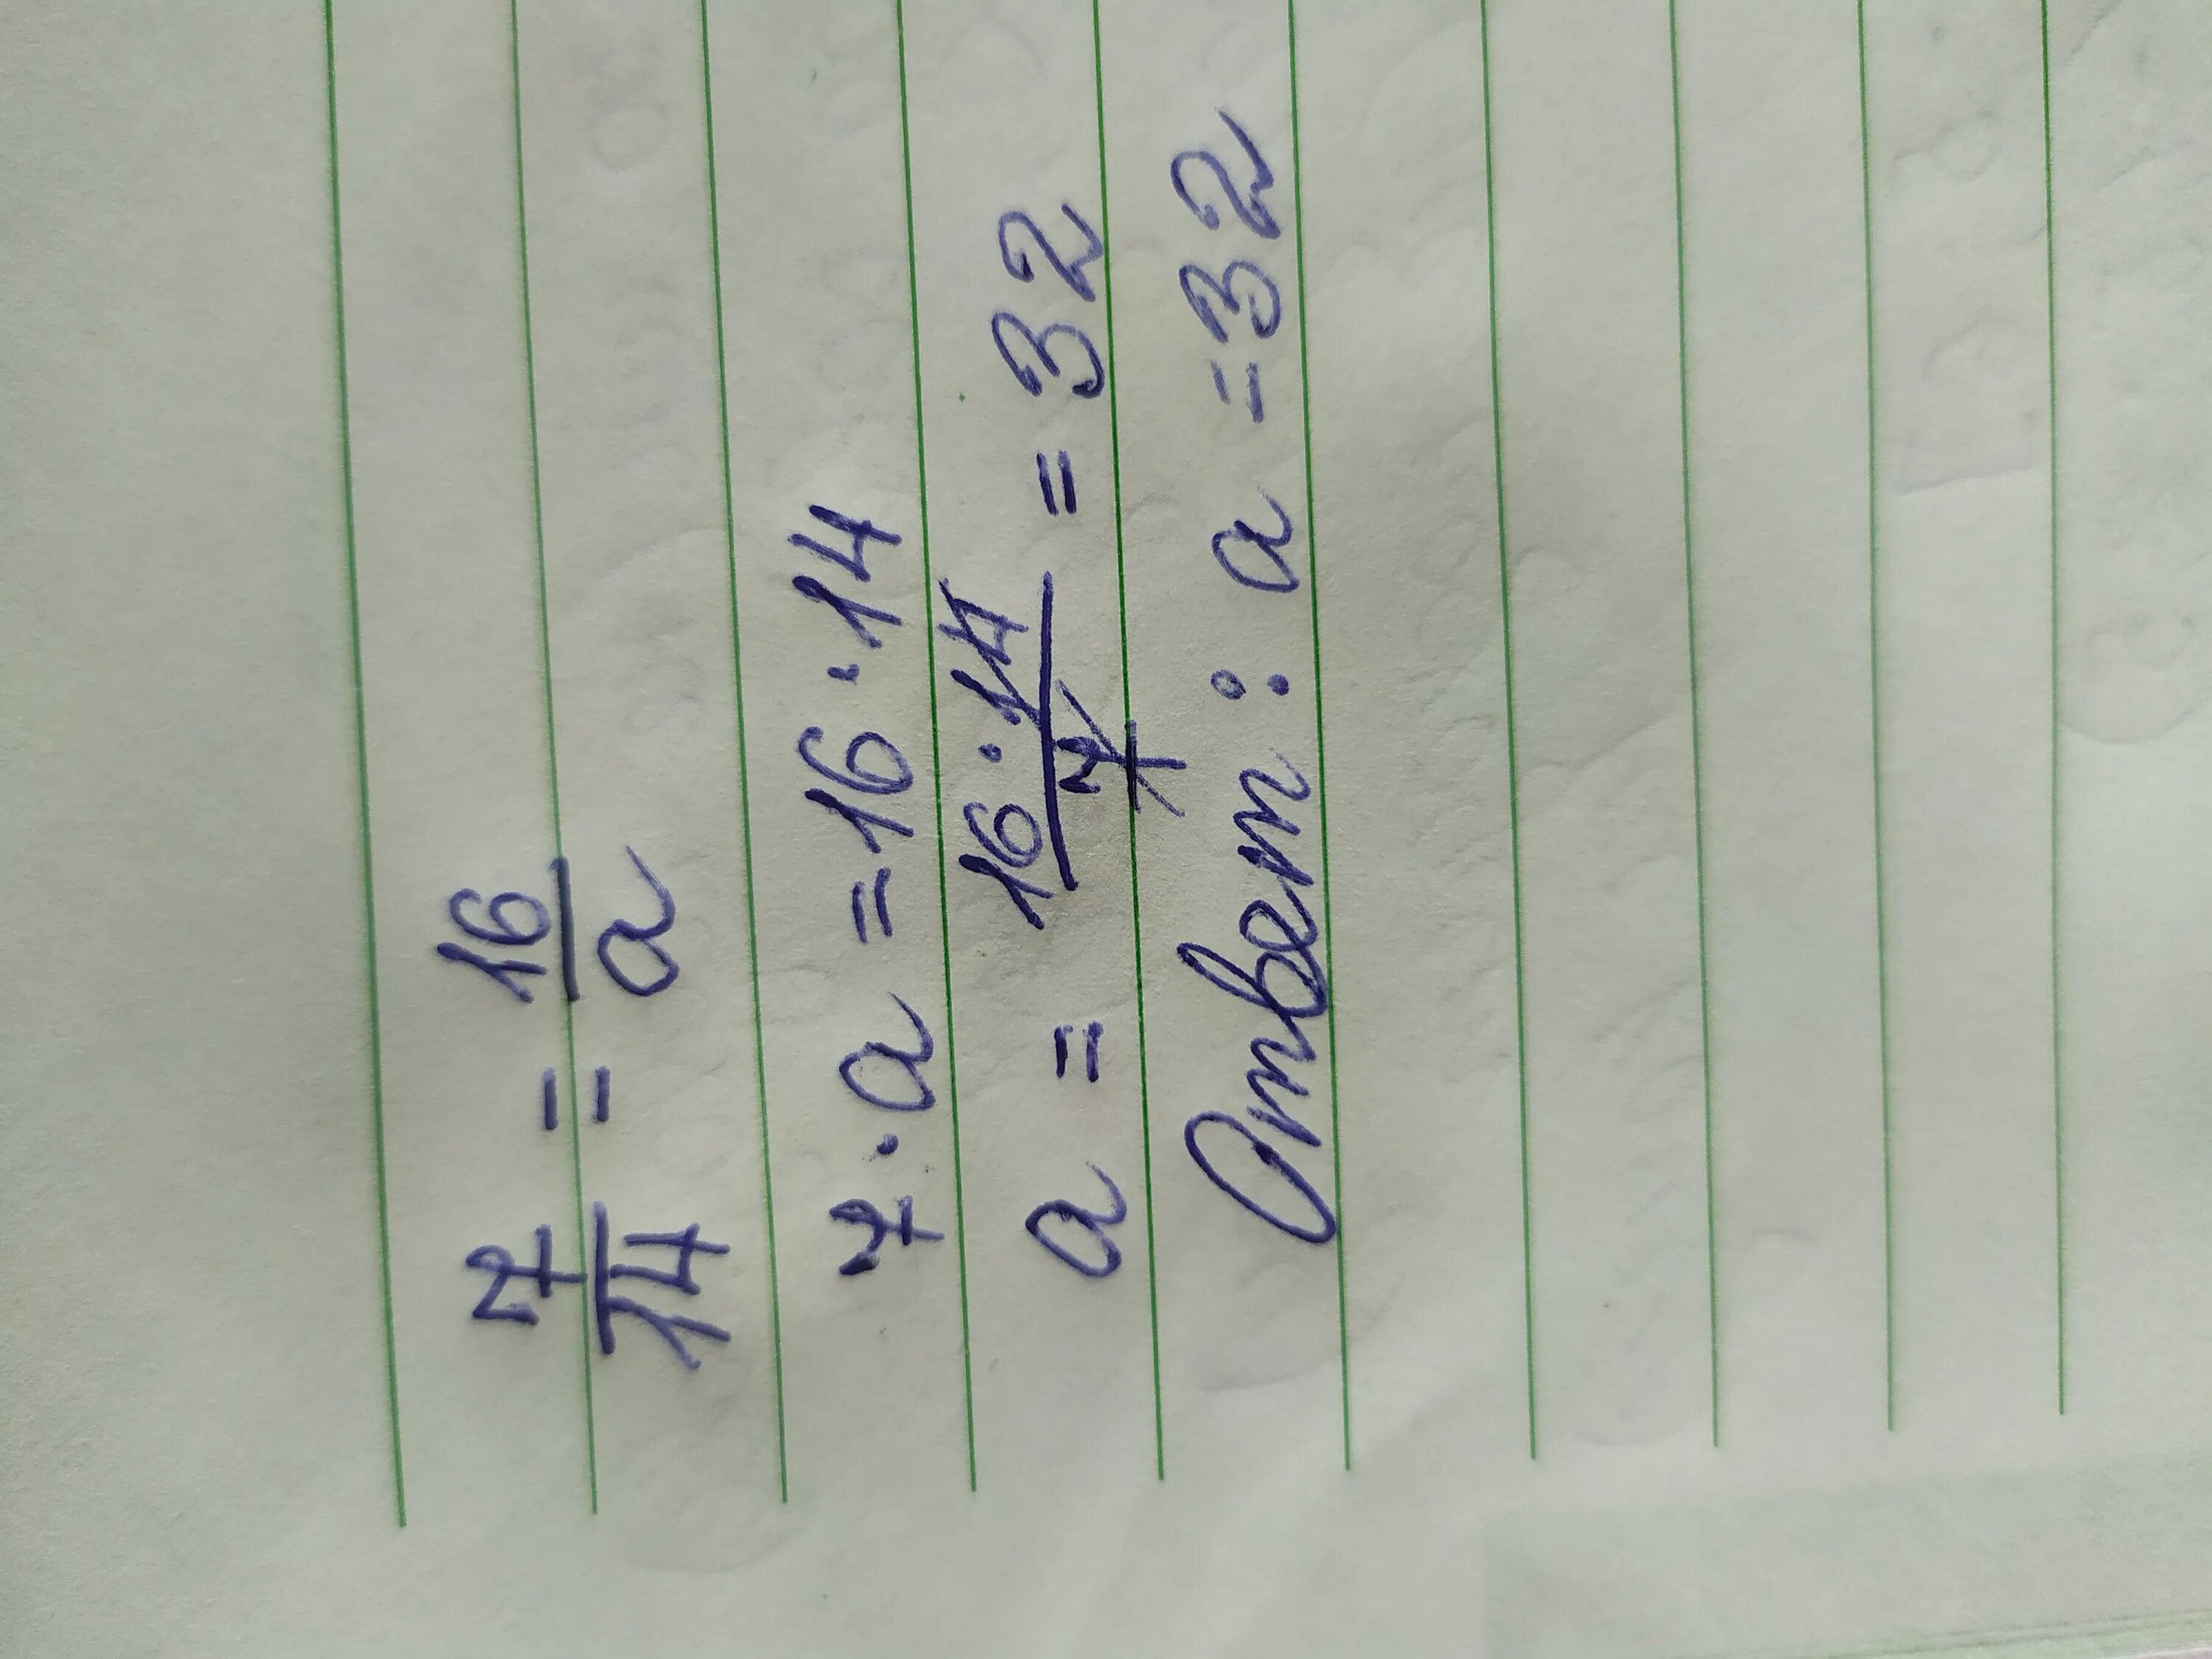 7/14 = 16/a
7 · a = 16 · 14
a = 16 · 14 / 7 = 32
Ответ : a = 32